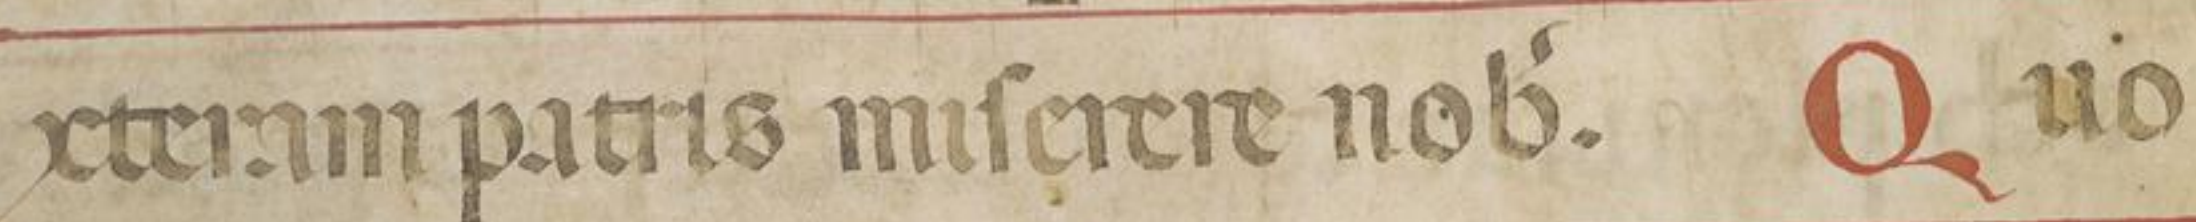 xteram patris miserere nob̾. Q uo